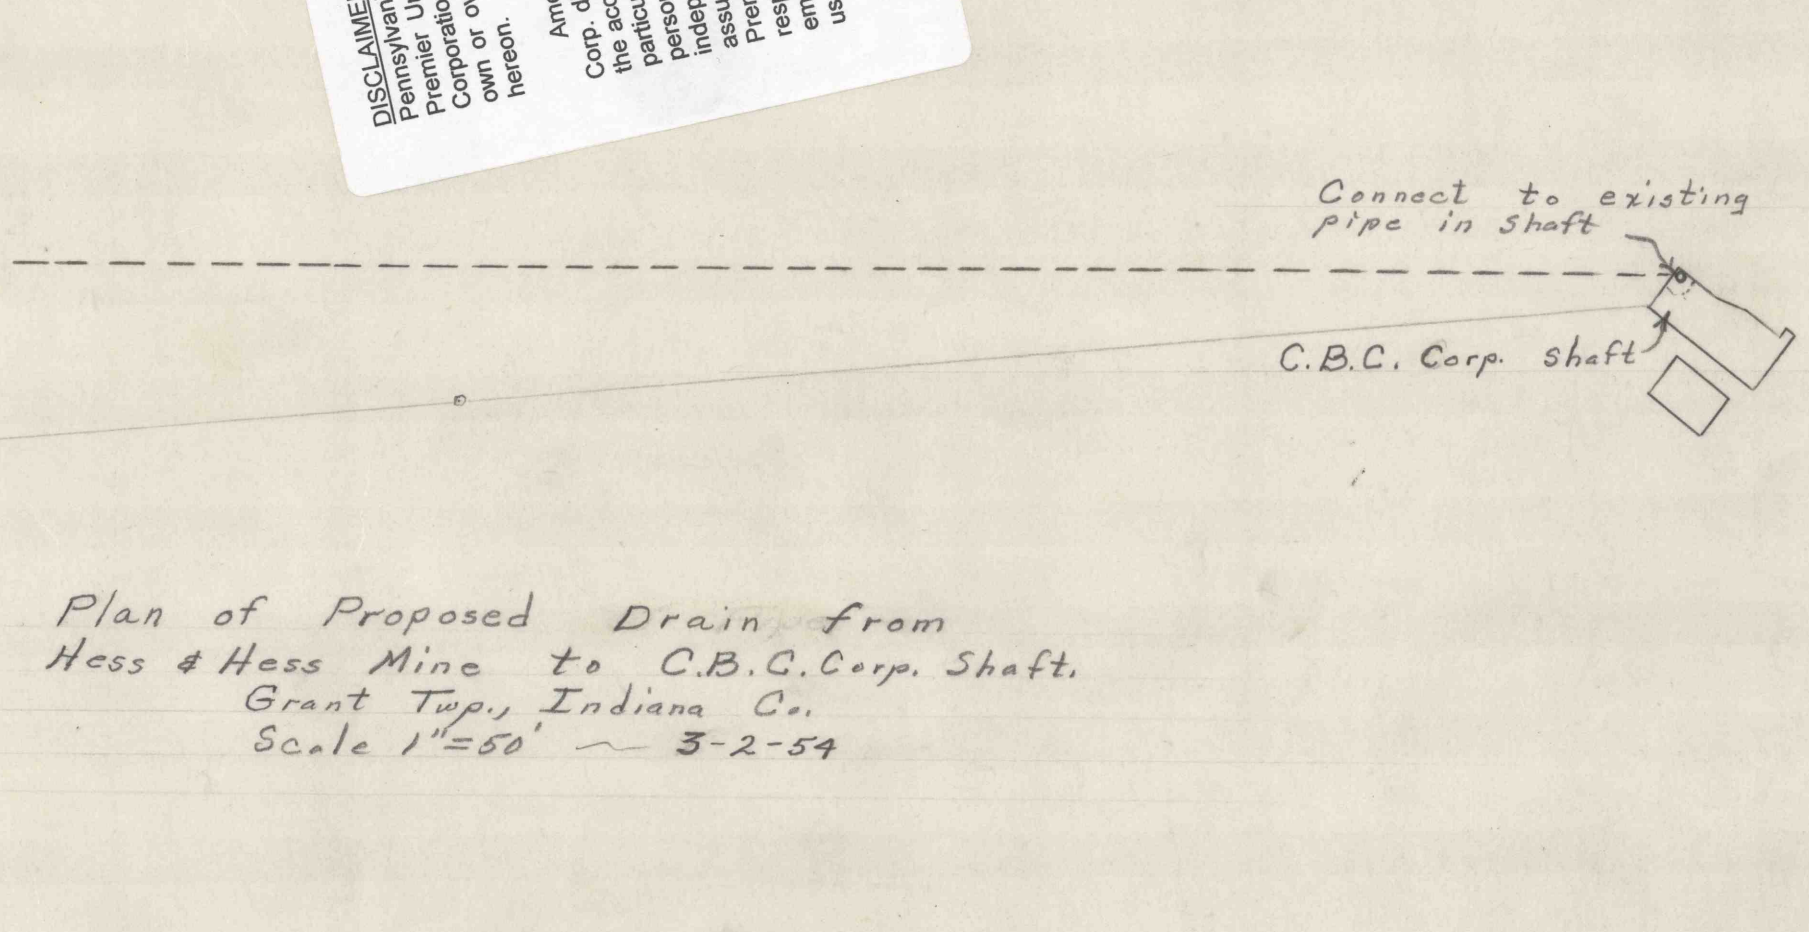 DISCLAIME
Pennsylvan
Premier Un
Corporatio
own or ow
hereon.
Ame
Corp. d
the acc
particu
perso
indep
assu
Prer
resp
em
us
Connect to existing
pipe in shaft
C.B.C. Corp. shaft
Plan of Proposed Drain from
Hess & Hess Mine to C.B.C. Corp. Shaft.
Grant Twp., Indiana Co.
Scale 1"=50' ~ 3-2-54